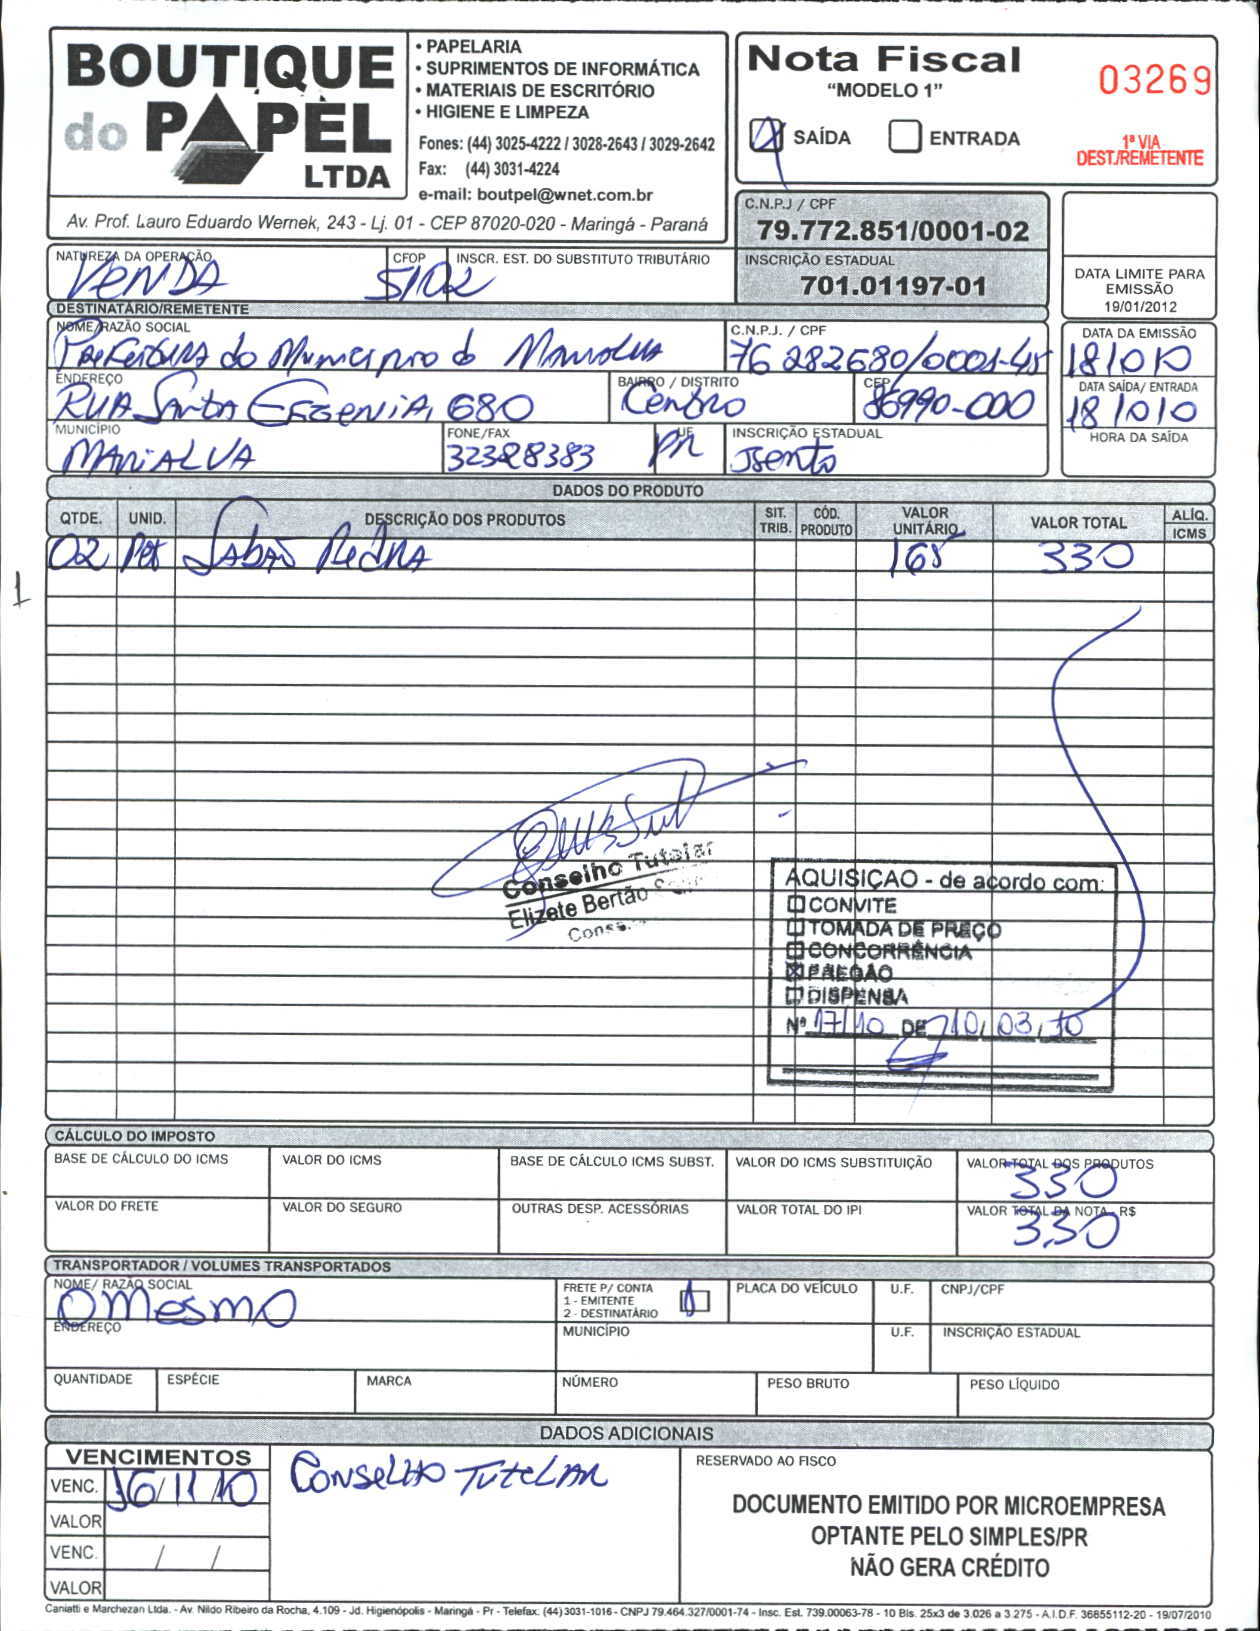 BOUTIQUE
do PAPEL
LTDA
• PAPELARIA
• SUPRIMENTOS DE INFORMÁTICA
• MATERIAIS DE ESCRITÓRIO
• HIGIENE E LIMPEZA
Fones: (44) 3025-4222 / 3028-2643 / 3029-2642
Fax: (44) 3031-4224
e-mail: boutpel@wnet.com.br
Av. Prof. Lauro Eduardo Wernek, 243 - Lj. 01 - CEP 87020-020 - Maringá - Paraná
Nota Fiscal
"MODELO 1"
03269
SAÍDA ENTRADA
1ª VIA
DEST./REMETENTE
C.N.P.J / CPF
79.772.851/0001-02
INSCRIÇÃO ESTADUAL
701.01197-01
DATA LIMITE PARA
EMISSÃO
19/01/2012
NATUREZA DA OPERAÇÃO CFOP INSCR. EST. DO SUBSTITUTO TRIBUTÁRIO
VENDA 5102
DESTINATÁRIO/REMETENTE
NOME/RAZÃO SOCIAL C.N.P.J. / CPF DATA DA EMISSÃO
Prefeitura do Municipio de 76 282680/0001-45 18/10/10
ENDEREÇO BAIRRO / DISTRITO CEP DATA SAÍDA/ ENTRADA
RUA Santa 680 Centro 86990-000 18/10/10
MUNICÍPIO FONE/FAX UF INSCRIÇÃO ESTADUAL HORA DA SAÍDA
MARIALVA 32328383 PR Isento
DADOS DO PRODUTO
QTDE. UNID. DESCRIÇÃO DOS PRODUTOS SIT. TRIB. CÓD. PRODUTO VALOR UNITÁRIO VALOR TOTAL ALÍQ. ICMS
02 Pct SABAO PEDRA 165 330
1
Conselho Tutelar
Elizete Bertão
AQUISIÇAO - de acordo com:
CONVITE
TOMADA DE PREÇO
CONCORRÊNCIA
PREGAO
DISPENSA
Nº 17/10 DE 10/03/10
CÁLCULO DO IMPOSTO
BASE DE CÁLCULO DO ICMS VALOR DO ICMS BASE DE CÁLCULO ICMS SUBST. VALOR DO ICMS SUBSTITUIÇÃO VALOR TOTAL DOS PRODUTOS
330
VALOR DO FRETE VALOR DO SEGURO OUTRAS DESP. ACESSÓRIAS VALOR TOTAL DO IPI VALOR TOTAL DA NOTA - R$
3,30
TRANSPORTADOR / VOLUMES TRANSPORTADOS
NOME/ RAZÃO SOCIAL FRETE P/ CONTA PLACA DO VEÍCULO U.F. CNPJ/CPF
O MESMO
1 - EMITENTE
2 - DESTINATÁRIO
ENDEREÇO MUNICÍPIO U.F. INSCRIÇÃO ESTADUAL
QUANTIDADE ESPÉCIE MARCA NÚMERO PESO BRUTO PESO LÍQUIDO
DADOS ADICIONAIS
VENCIMENTOS
VENC. 16/11/10
VALOR
VENC. / /
VALOR
CONSELHO TUTELAR
RESERVADO AO FISCO
DOCUMENTO EMITIDO POR MICROEMPRESA
OPTANTE PELO SIMPLES/PR
NÃO GERA CRÉDITO
Caniatti e Marchezan Ltda. - Av. Nildo Ribeiro da Rocha, 4.109 - Jd. Higienópolis - Maringá - Pr - Telefax: (44) 3031-1016 - CNPJ 79.464.327/0001-74 - Insc. Est. 739.00063-78 - 10 Bls. 25x3 de 3.026 a 3.275 - A.I.D.F. 36855112-20 - 19/07/2010